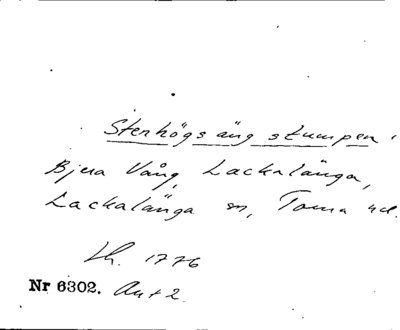 Stenhögs äng stumpen
Bjera Vång, Lackalänga,
Lackalänga sn, Torna hd.
Lh. 1776
Nr 6302. Ant 2.